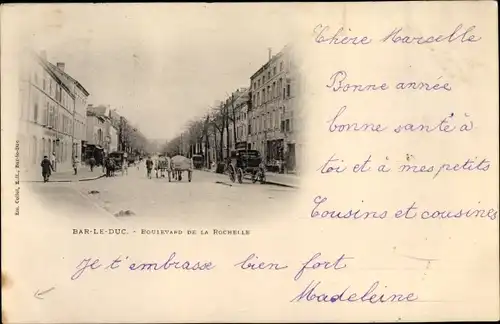 Chère Marcelle,
Bonne année
bonne santé à
toi et à mes petits
Cousins et cousines
BAR-LE-DUC. - BOULEVARD DE LA ROCHELLE
je t'embrasse bien fort
Madeleine